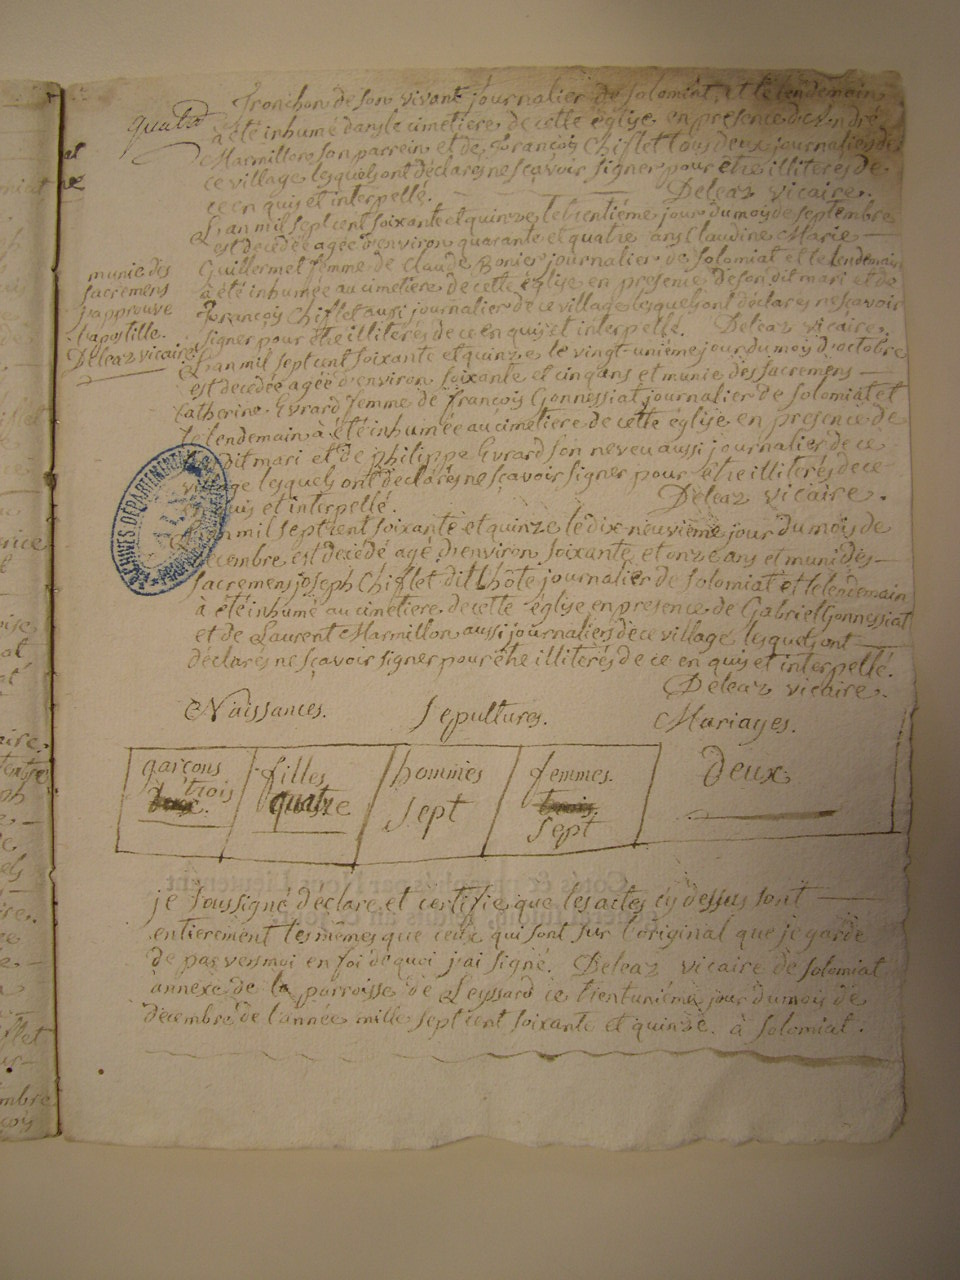 quatre
Tronchon de son vivant journalier de Solomiat, et le lendemain
à été inhumé dans le cimetiere de cette église en presence d'André
Marmillon son parrein et de François Chiflet tous deux journaliers de
ce village lesquels ont déclarés ne sçavoir signer pour être illiterés de
ce en quis et interpellé. Deleaz vicaire.
L'an mil sept cent soixante et quinze, le trentiéme jour du mois de septembre
est decedée agée d'environ quarante et quatre ans Claudine Marie
Guillermet femme de Claude Bonier journalier de Solomiat et le lendemain
à été inhumée au cimetiere de cette église en presence de son dit mari et de
François Chiflet aussi journalier de ce village lesquels ont déclarés ne sçavoir
signer pour être illiterés de ce en quis et interpellé. Deleaz vicaire.
munie des
sacremens
j'approuve
l'apostille.
Deleaz vicaire
L'an mil sept cent soixante et quinze le vingt-uniéme jour du mois d'octobre
est decedée agée d'environ soixante et cinq ans et munie des sacremens
Catherine Evrard femme de François Gonnessiat journalier de Solomiat et
le lendemain à été inhumée au cimetiere de cette église en presence de
dit mari et de philippe Evrard son neveu aussi journalier de ce
village lesquels ont déclarés ne sçavoir signer pour être illiterés de ce
quis et interpellé. Deleaz vicaire.
L'an mil sept cent soixante et quinze le dix-neuviéme jour du mois de
decembre est decedé agé d'environ soixante et onze ans et muni des
sacremens joseph Chiflet dit Lhôte journalier de Solomiat et le lendemain
à été inhumé au cimetiere de cette église en presence de Gabriel Gonnessiat
et de Laurent Marmillon aussi journaliers de ce village lesquels ont
déclarés ne sçavoir signer pour être illiterés de ce en quis et interpellé.
Deleaz vicaire.
ARCHIVES DÉPARTEMENTALES
Naissances. Sepultures. Mariages.
garçons filles hommes femmes. deux
trois quatre sept sept
je soussigné déclare et certifie que les actes cy dessus sont
entierement les mêmes que ceux qui sont sur l'original que je garde
de par vers moi en foi de quoi j'ai signé. Deleaz vicaire de Solomiat
annexe de la parroisse de Leyssard ce trent uniéme jour du mois de
decembre de l'année mille sept cent soixante et quinze. à Solomiat.